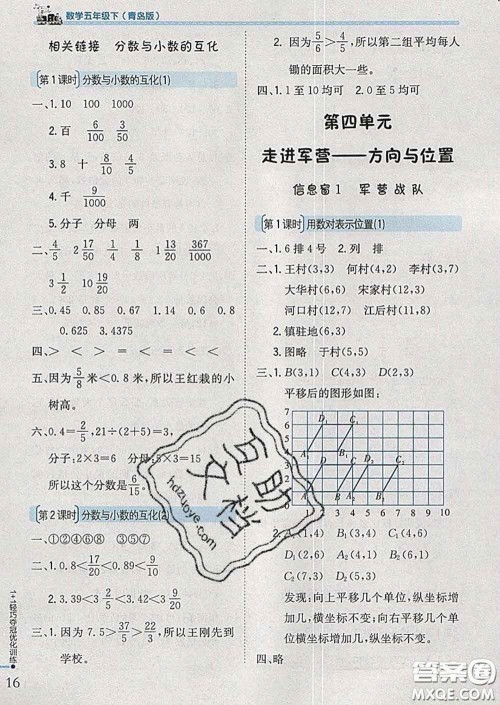 数学五年级下（青岛版）
相关链接 分数与小数的互化
第1课时 分数与小数的互化(1)
一、1.10 100 1000
2.百 6/100 3/50
3.8 十 8/10 4/5
4.千 9/1000
5.大 分子 分母 两
二、4/5 2 17/50 1/2 1 13/20 367/1000
3 1/2 19/20
三、0.45 0.85 0.67 1.8 0.6
0.625 4.375
四、> < = < < <
五、因为5/8米<0.8米,所以王红栽的小
树高。
六、0.4=2/5,21÷(2+5)=3,
分子:2×3=6 分母:5×3=15
所以这个分数是6/15。
第2课时 分数与小数的互化(2)
一、①②④⑥⑧ ③⑤⑦
三、1.因为7.5>37/5>22/3,所以王刚先到
学校。
1+1轻巧夺冠优化训练
16
2.因为5/6>4/5,所以第二组平均每人
锄的面积大一些。
四、1.1至10均可 2.0至5均可
第四单元
走进军营——方向与位置
信息窗1 军营战队
第1课时 用数对表示位置(1)
一、1.6排4号 2.列 排
二、1.王村(3,3) 何村(4,2) 李村(7,3)
大华村(6,6) 宋家村(10,6)
河口村(12,7) 江后村(11,8)
2.镇驻地(6,3)
3.图略 于村(5,5)
三、1.C(4,3) D(2,3)
平移后的图形如图:
7
6
5
4
3
2
1
0 1 2 3 4 5 6 7 8 9 10
发现:向上平移几个单位,纵坐标
加几,横坐标不变;向右平移几个
单位,横坐标加几,纵坐标不变。
四、略
互助文档
hdzuoye.com
答案圈
MXQE.COM